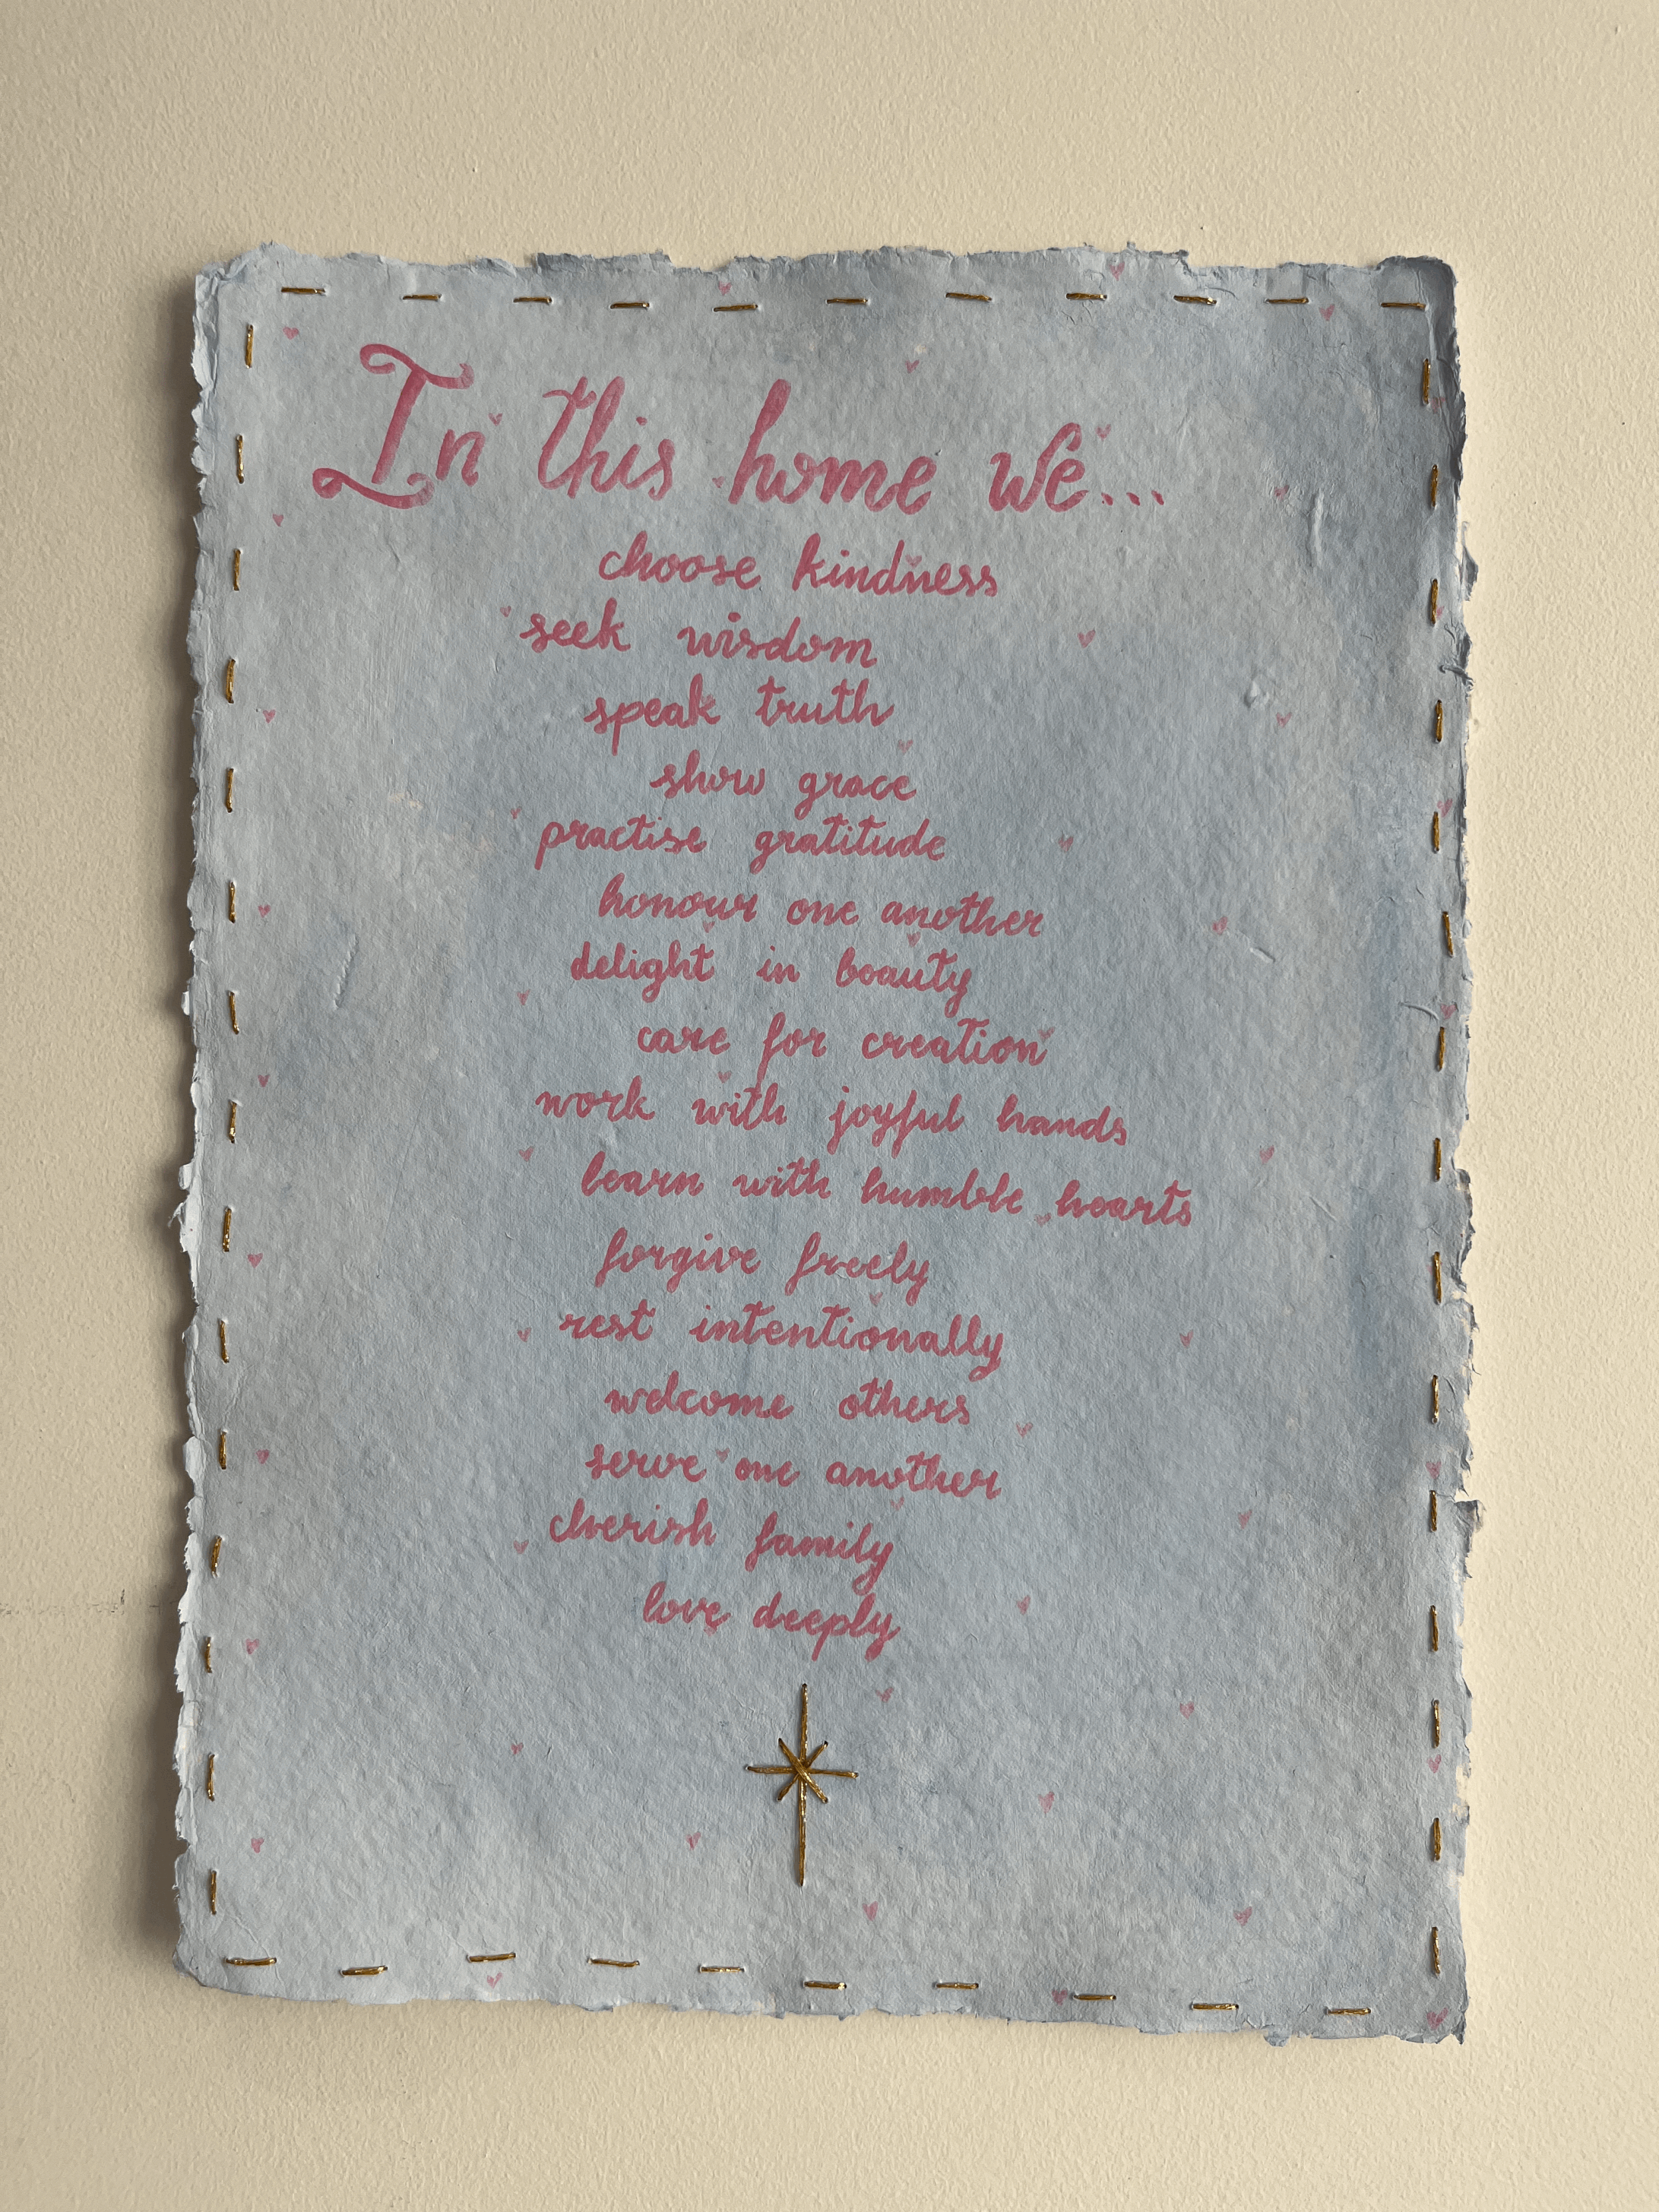 In this home we...
choose kindness
seek wisdom
speak truth
show grace
practise gratitude
honour one another
delight in beauty
care for creation
work with joyful hands
learn with humble hearts
forgive freely
rest intentionally
welcome others
serve one another
cherish family
love deeply